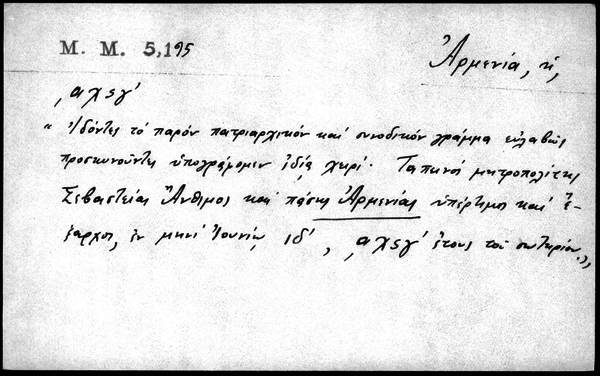 M. M. 5,195
Ἀρμενία, ἡ,
͵αχϟγʹ
"Ἰδόντες τό παρόν πατριαρχικόν καί συνοδικόν γράμμα εὐλαβῶς
προσκυνοῦντες ὑπογράφομεν ἰδίᾳ χειρί· Ταπεινός μητροπολίτης
Σεβαστείας Ἄνθιμος καί πάσης Ἀρμενίας ὑπέρτιμος καί ἔ-
ξαρχος, ἐν μηνί Ἰουνίῳ ιδʹ, ͵αχϟγʹ ἔτους τοῦ σωτηρίου."